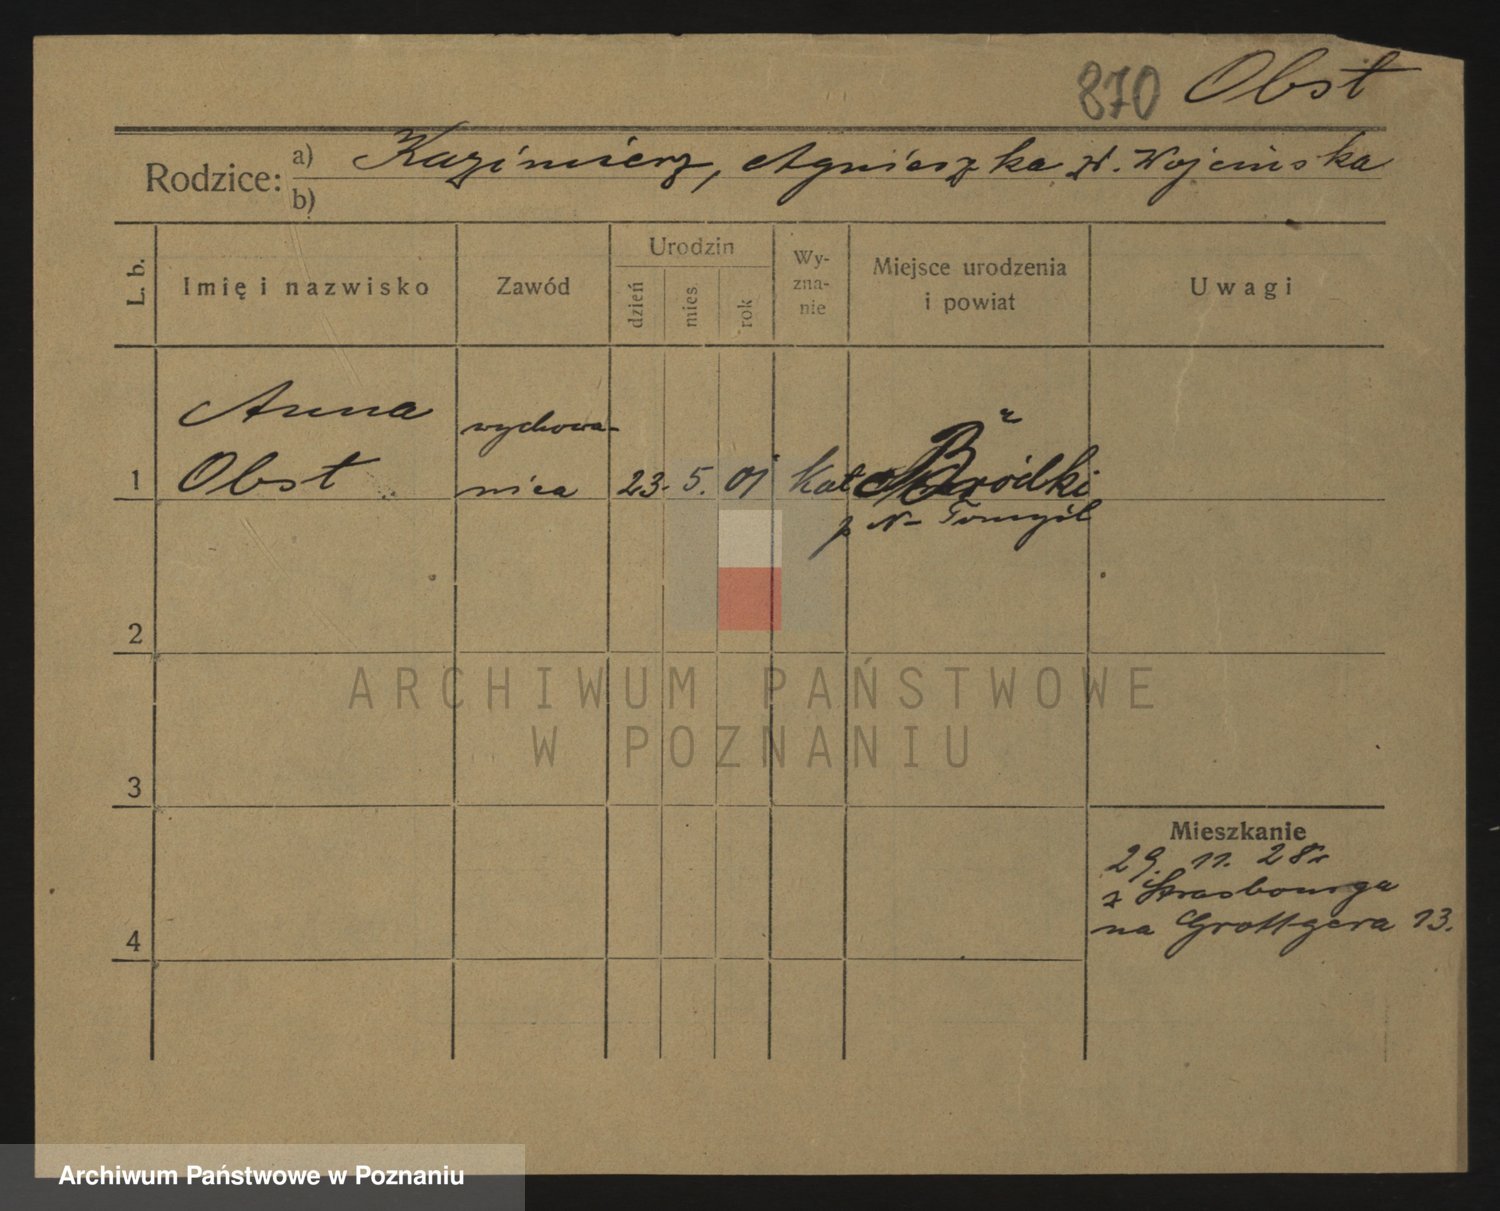 870 Obst
Rodzice: a) Kazimierz, Agnieszka z d. Wojcińska
b)
L. b.
Imię i nazwisko
Zawód
Urodzin
dzień
mies.
rok
Wy-
zna-
nie
Miejsce urodzenia
i powiat
Uwagi
Anna
wychowa-
1 Obst nica 23. 5. 01 Kat Bródki
p N- Tomyśl
2
3
4
Mieszkanie
29. 11. 28r
z Strasbourga
na Grottgera 13.
ARCHIWUM PAŃSTWOWE
W POZNANIU
Archiwum Państwowe w Poznaniu